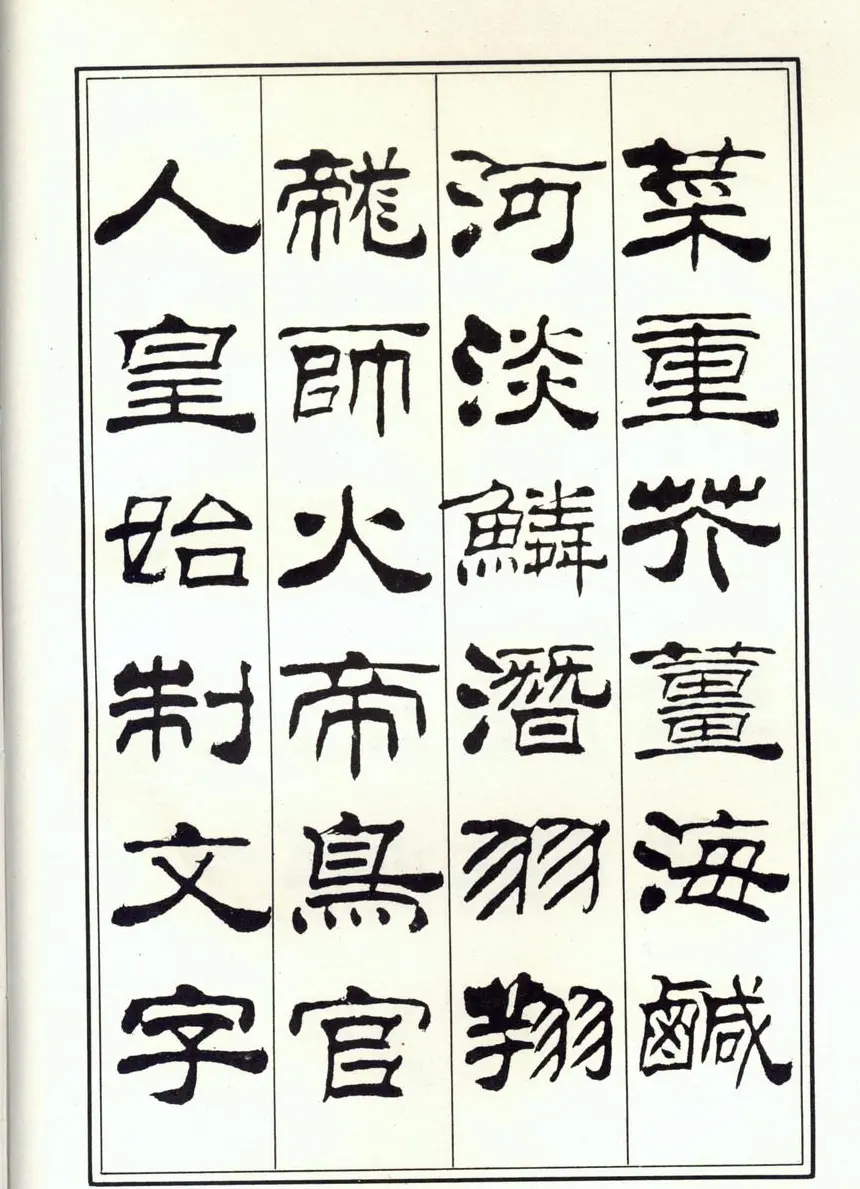 菜重芥薑海鹹
河淡鱗潛羽翔
龍師火帝鳥官
人皇始制文字